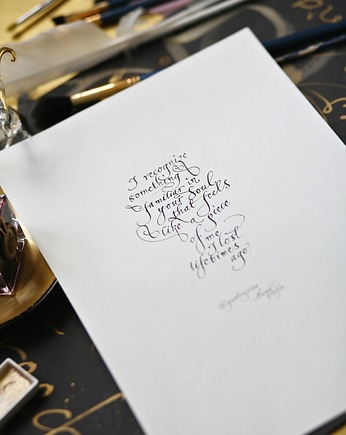 I recognize
something
familiar in
your soul
that feels
like a piece
of me I lost
lifetimes
ago